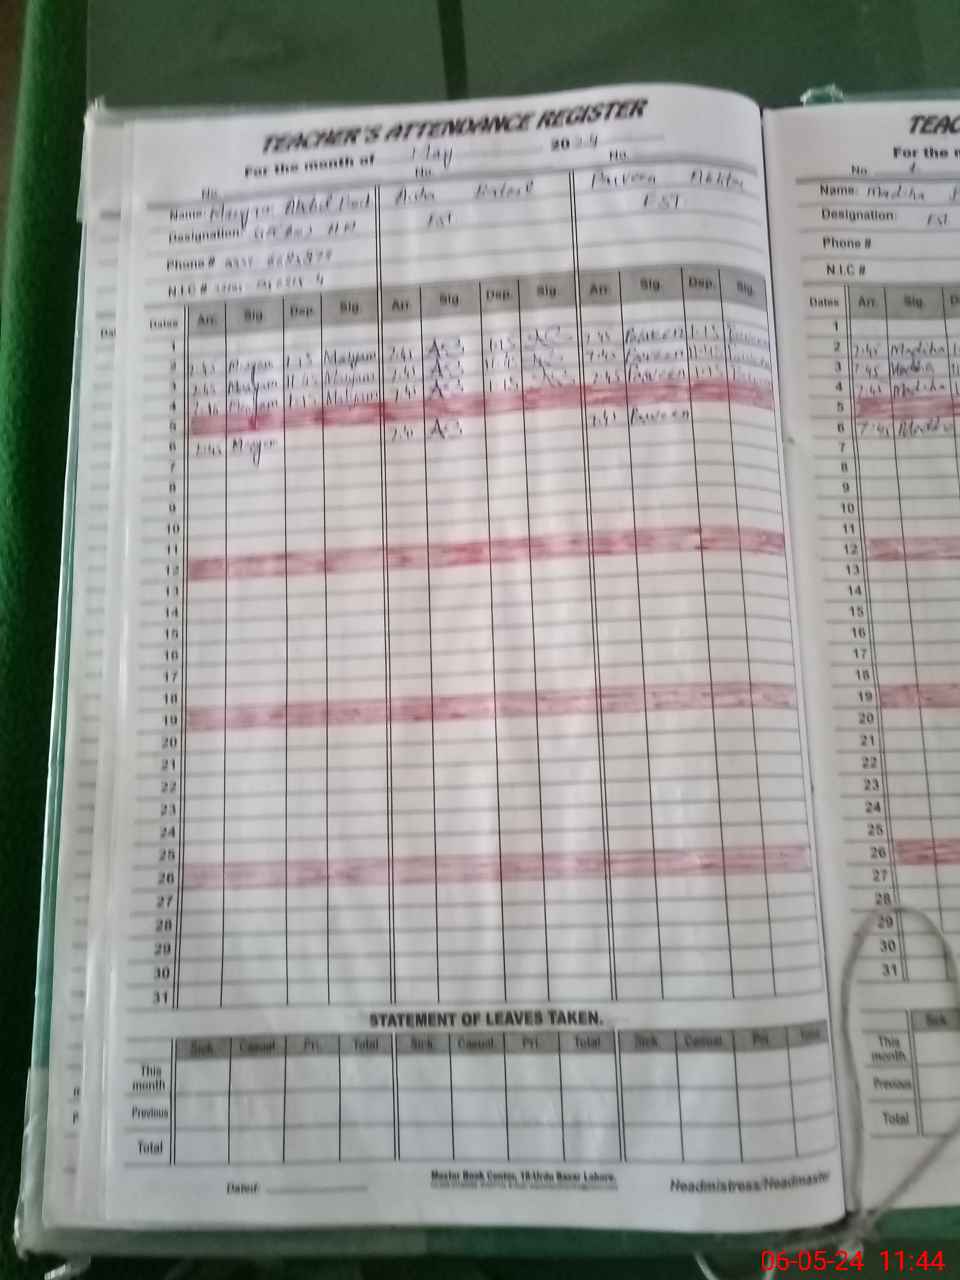 TEACHER'S ATTENDANCE REGISTER
For the month of May 2024
No. No. No.
Name: Maryam Aisha Parveen
Designation: EST EST
Phone #
N.I.C #
Dates Arr. Sig. Dep. Sig. Arr. Sig. Dep. Sig. Arr. Sig. Dep. Sig.
1
2 7:45 Maryam 1:15 Maryam 7:45 1:15 7:45 Parveen 1:15
3 7:45 Maryam 11:45 Maryam 7:45 11:45 7:45 Parveen 11:45
4 Maryam 1:15 Maryam 7:45 1:15 7:45 Parveen 1:15
5
6 7:45 Maryam 7:45 7:45 Parveen
7
8
9
10
11
12
13
14
15
16
17
18
19
20
21
22
23
24
25
26
27
28
29
30
31
STATEMENT OF LEAVES TAKEN.
Sick Casual Pri. Total Sick Casual Pri. Total Sick Casual Pri. Total
This month
Previous
Total
Dated:
Master Book Centre, 18-Urdu Bazar Lahore.
Headmistress/Headmaster
TEAC
For the m
No.
Name: Madiha
Designation: EST
Phone #
N.I.C #
Dates Arr. Sig. D
1
2 7:45 Madiha
3 7:45 Madiha
4 7:45 Madiha
5
6 7:45 Madiha
7
8
9
10
11
12
13
14
15
16
17
18
19
20
21
22
23
24
25
26
27
28
29
30
31
Sick
This month
Previous
Total
06-05-24 11:44